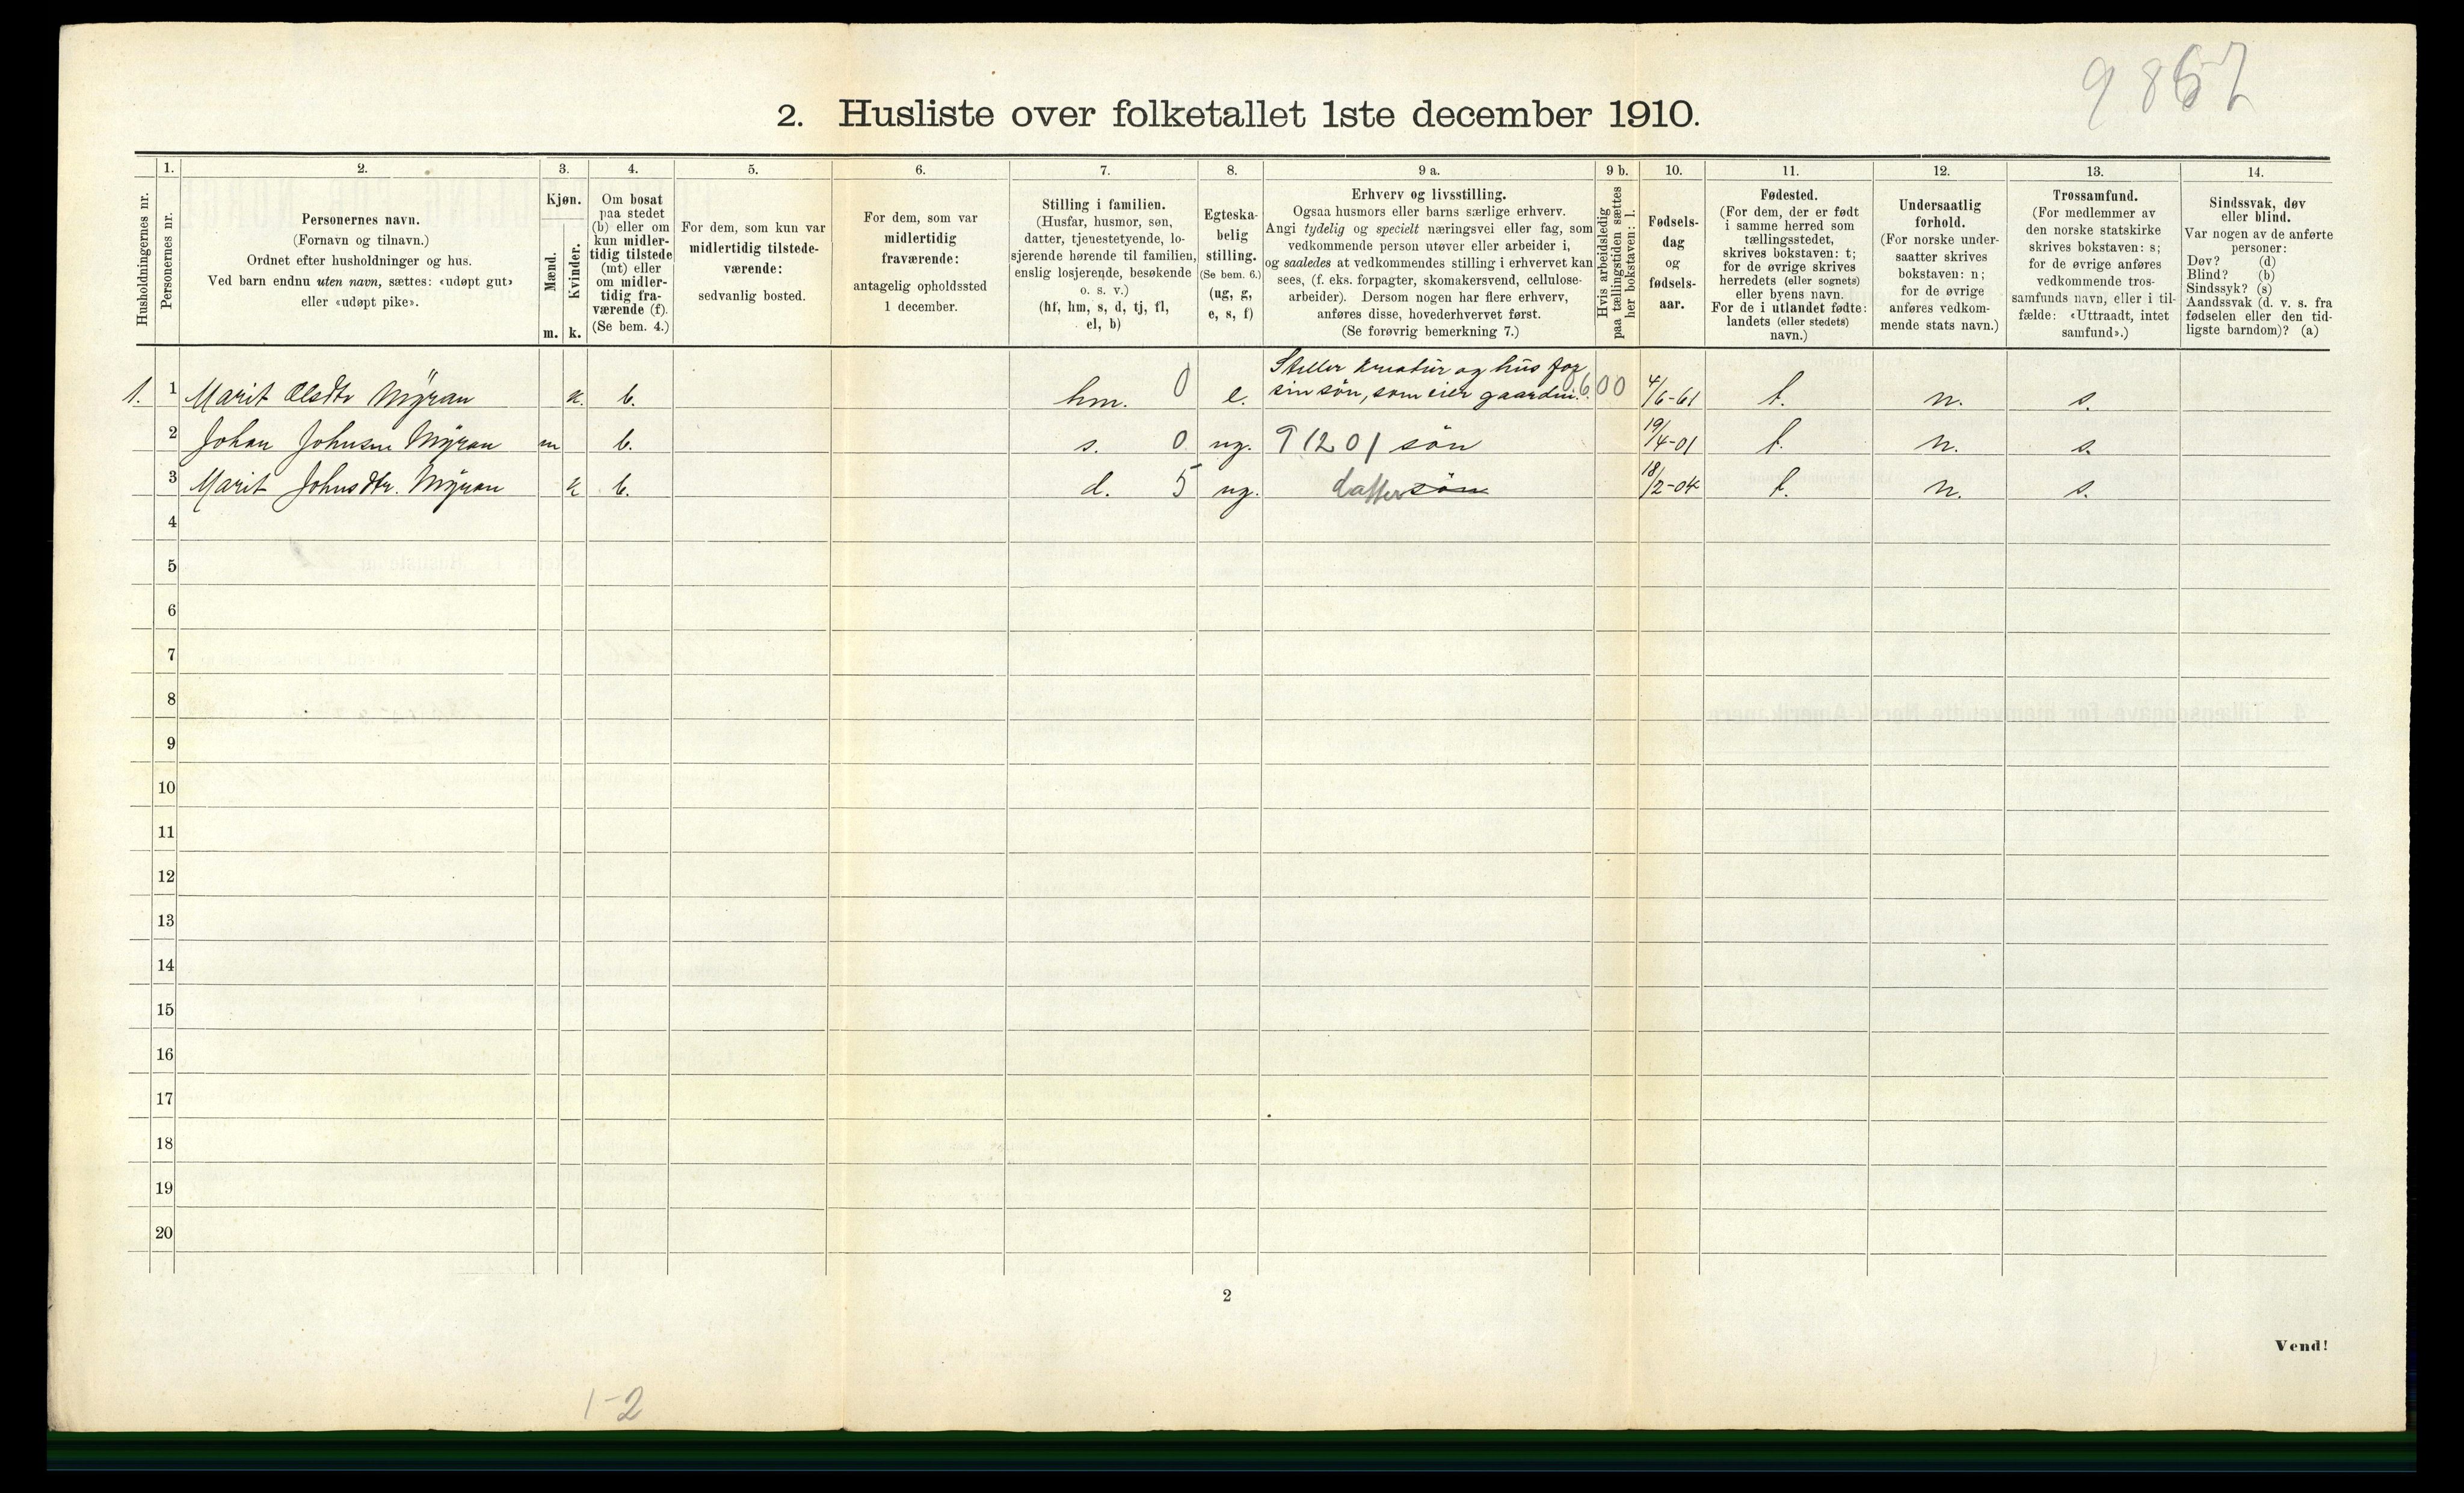 9867
2. Husliste over folketallet 1ste december 1910.
Husholdningernes nr.
1.
Personernes nr.
2.
Personernes navn.
(Fornavn og tilnavn.)
Ordnet efter husholdninger og hus.
Ved barn endnu uten navn, sættes: «udøpt gut»
eller «udøpt pike».
3.
Kjøn.
Mænd.
m.
Kvinder.
k.
4.
Om bosat
paa stedet
(b) eller om
kun midler-
tidig tilstede
(mt) eller
om midler-
tidig fra-
værende (f).
(Se bem. 4.)
5.
For dem, som kun var
midlertidig tilstede-
værende:
sedvanlig bosted.
6.
For dem, som var
midlertidig
fraværende:
antagelig opholdssted
1 december.
7.
Stilling i familien.
(Husfar, husmor, søn,
datter, tjenestetyende, lo-
sjerende hørende til familien,
enslig losjerende, besøkende
o. s. v.)
(hf, hm, s, d, tj, fl,
el, b)
8.
Egteska-
belig
stilling.
(Se bem. 6.)
(ug, g,
e, s, f)
9 a.
Erhverv og livsstilling.
Ogsaa husmors eller barns særlige erhverv.
Angi tydelig og specielt næringsvei eller fag, som
vedkommende person utøver eller arbeider i,
og saaledes at vedkommendes stilling i erhvervet kan
sees, (f. eks. forpagter, skomakersvend, cellulose-
arbeider). Dersom nogen har flere erhverv,
anføres disse, hovederhvervet først.
(Se forøvrig bemerkning 7.)
9 b.
Hvis arbeidsledig
paa tællingstiden sættes
her bokstaven: l.
10.
Fødsels-
dag
og
fødsels-
aar.
11.
Fødested.
(For dem, der er født
i samme herred som
tællingsstedet,
skrives bokstaven: t;
for de øvrige skrives
herredets (eller sognets)
eller byens navn.
For de i utlandet fødte:
landets (eller stedets)
navn.)
12.
Undersaatlig
forhold.
(For norske under-
saatter skrives
bokstaven: n;
for de øvrige
anføres vedkom-
mende stats navn.)
13.
Trossamfund.
(For medlemmer av
den norske statskirke
skrives bokstaven: s;
for de øvrige anføres
vedkommende tros-
samfunds navn, eller i til-
fælde: «Uttraadt, intet
samfund».)
14.
Sindssvak, døv
eller blind.
Var nogen av de anførte
personer:
Døv? (d)
Blind? (b)
Sindssyk? (s)
Aandssvak (d. v. s. fra
fødselen eller den tid-
ligste barndom)? (a)
Steller kreatur og hus for
1. 1 Marit Olsdtr Mÿran k. b. hm. 0 e. sin søn, som eier gaarden. 0600 4/6-61 t. n. s.
2 Johan Johnsen Mÿran m b. s. 0 ug. 9 1201 søn 19/4-01 t. n. s.
3 Marit Johnsdtr. Mÿran k b. d. 5 ug. datter søn 18/2-04 t. n. s.
4
5
6
7
8
9
10
11
12
13
14
15
16
17
18
19
20
2
Vend!
1-2